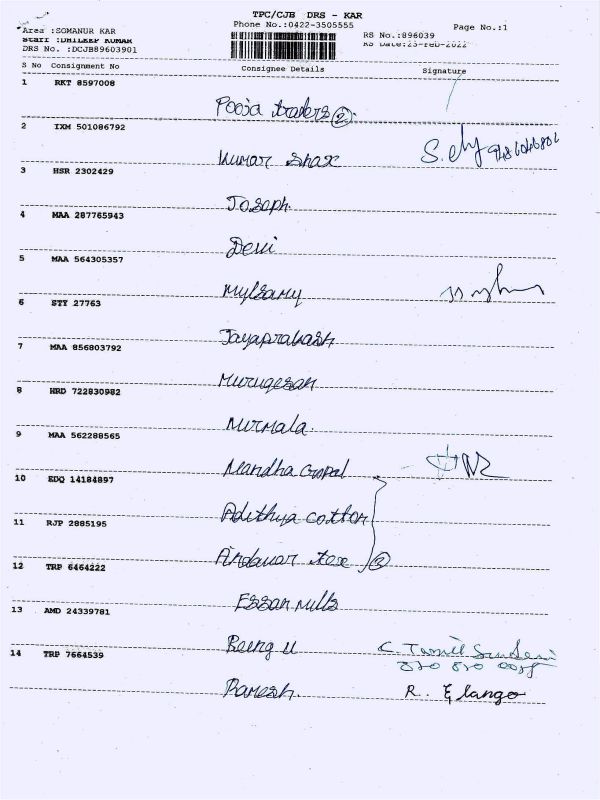 TPC/CJB DRS - KAR
Area :SOMANUR KAR
Phone No.:0422-3505555
Page No.:1
RS No.:896039
Staff :DHILEEP KUMAR
RS Date:23-Feb-2022
DRS No. :DCJB89603901
S No Consignment No Consignee Details Signature
1 RKT 8597008
Pooja traders 2
2 IXM 501086792
Kumar
3 HSR 2302429
Joseph
4 MAA 287765943
Devi
5 MAA 564305357
Mylsamy
6 STY 27763
Jayaprakash
7 MAA 856803792
Murugesan
8 HRD 722830982
Nirmala
9 MAA 562288565
Nandha Gopal
10 EDQ 14184897
Adithya cotton
11 RJP 2885195
Andavar tex 3
12 TRP 6464222
Essar Mills
13 AMD 24339781
Being u C. Tamil
14 TRP 7664539
Ramesh. R. Elango